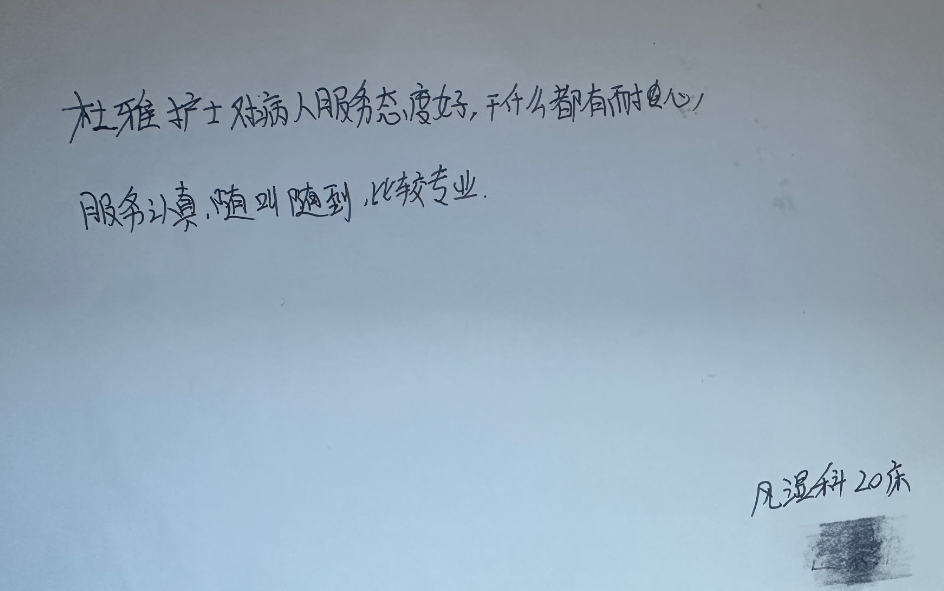 杜雅护士对病人服务态度好,干什么都有耐心,
服务认真,随叫随到,比较专业.
风湿科20床